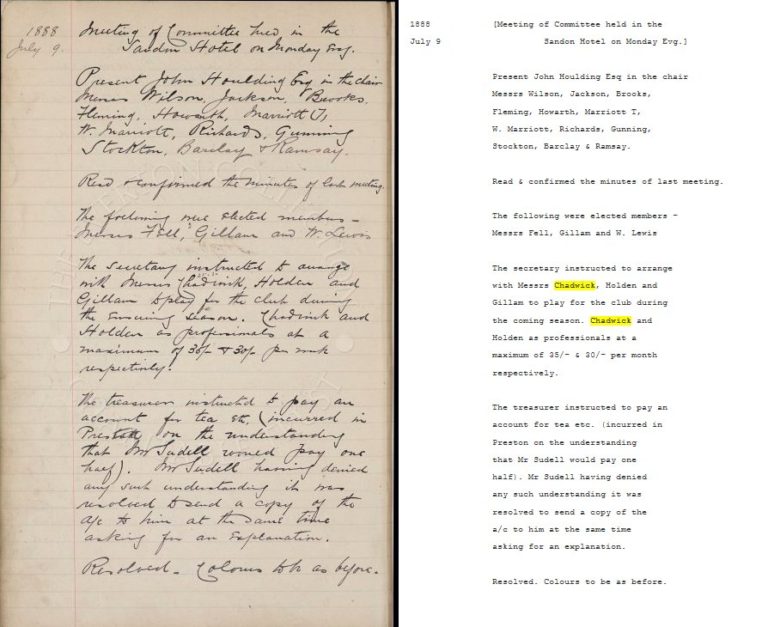 1888
July 9.
Meeting of Committee held in the
Sandon Hotel on Monday Evg.
Present John Houlding Esq in the chair
Messrs Wilson, Jackson, Brooks,
Fleming, Howarth, Marriott (T),
W. Marriott, Richards, Gunning
Stockton, Barclay & Ramsay.
Read & confirmed the minutes of last meeting.
The following were elected members –
Messrs Fell, Gillam and W. Lewis
The secretary instructed to arrange
with Messrs Chadwick, Holden and
Gillam to play for the club during
the ensuing season. Chadwick and
Holden as professionals at a
maximum of 35/- & 30/- per week
respectively.
The treasurer instructed to pay an
account for tea etc. (incurred in
Preston on the understanding
that Mr Sudell would pay one
half). Mr Sudell having denied
any such understanding it was
resolved to send a copy of the
a/c to him at the same time
asking for an explanation.
Resolved. Colours to be as before.
1888
July 9
[Meeting of Committee held in the
Sandon Hotel on Monday Evg.]
Present John Houlding Esq in the chair
Messrs Wilson, Jackson, Brooks,
Fleming, Howarth, Marriott T,
W. Marriott, Richards, Gunning,
Stockton, Barclay & Ramsay.
Read & confirmed the minutes of last meeting.
The following were elected members –
Messrs Fell, Gillam and W. Lewis
The secretary instructed to arrange
with Messrs Chadwick, Holden and
Gillam to play for the club during
the coming season. Chadwick and
Holden as professionals at a
maximum of 35/- & 30/- per month
respectively.
The treasurer instructed to pay an
account for tea etc. (incurred in
Preston on the understanding
that Mr Sudell would pay one
half). Mr Sudell having denied
any such understanding it was
resolved to send a copy of the
a/c to him at the same time
asking for an explanation.
Resolved. Colours to be as before.